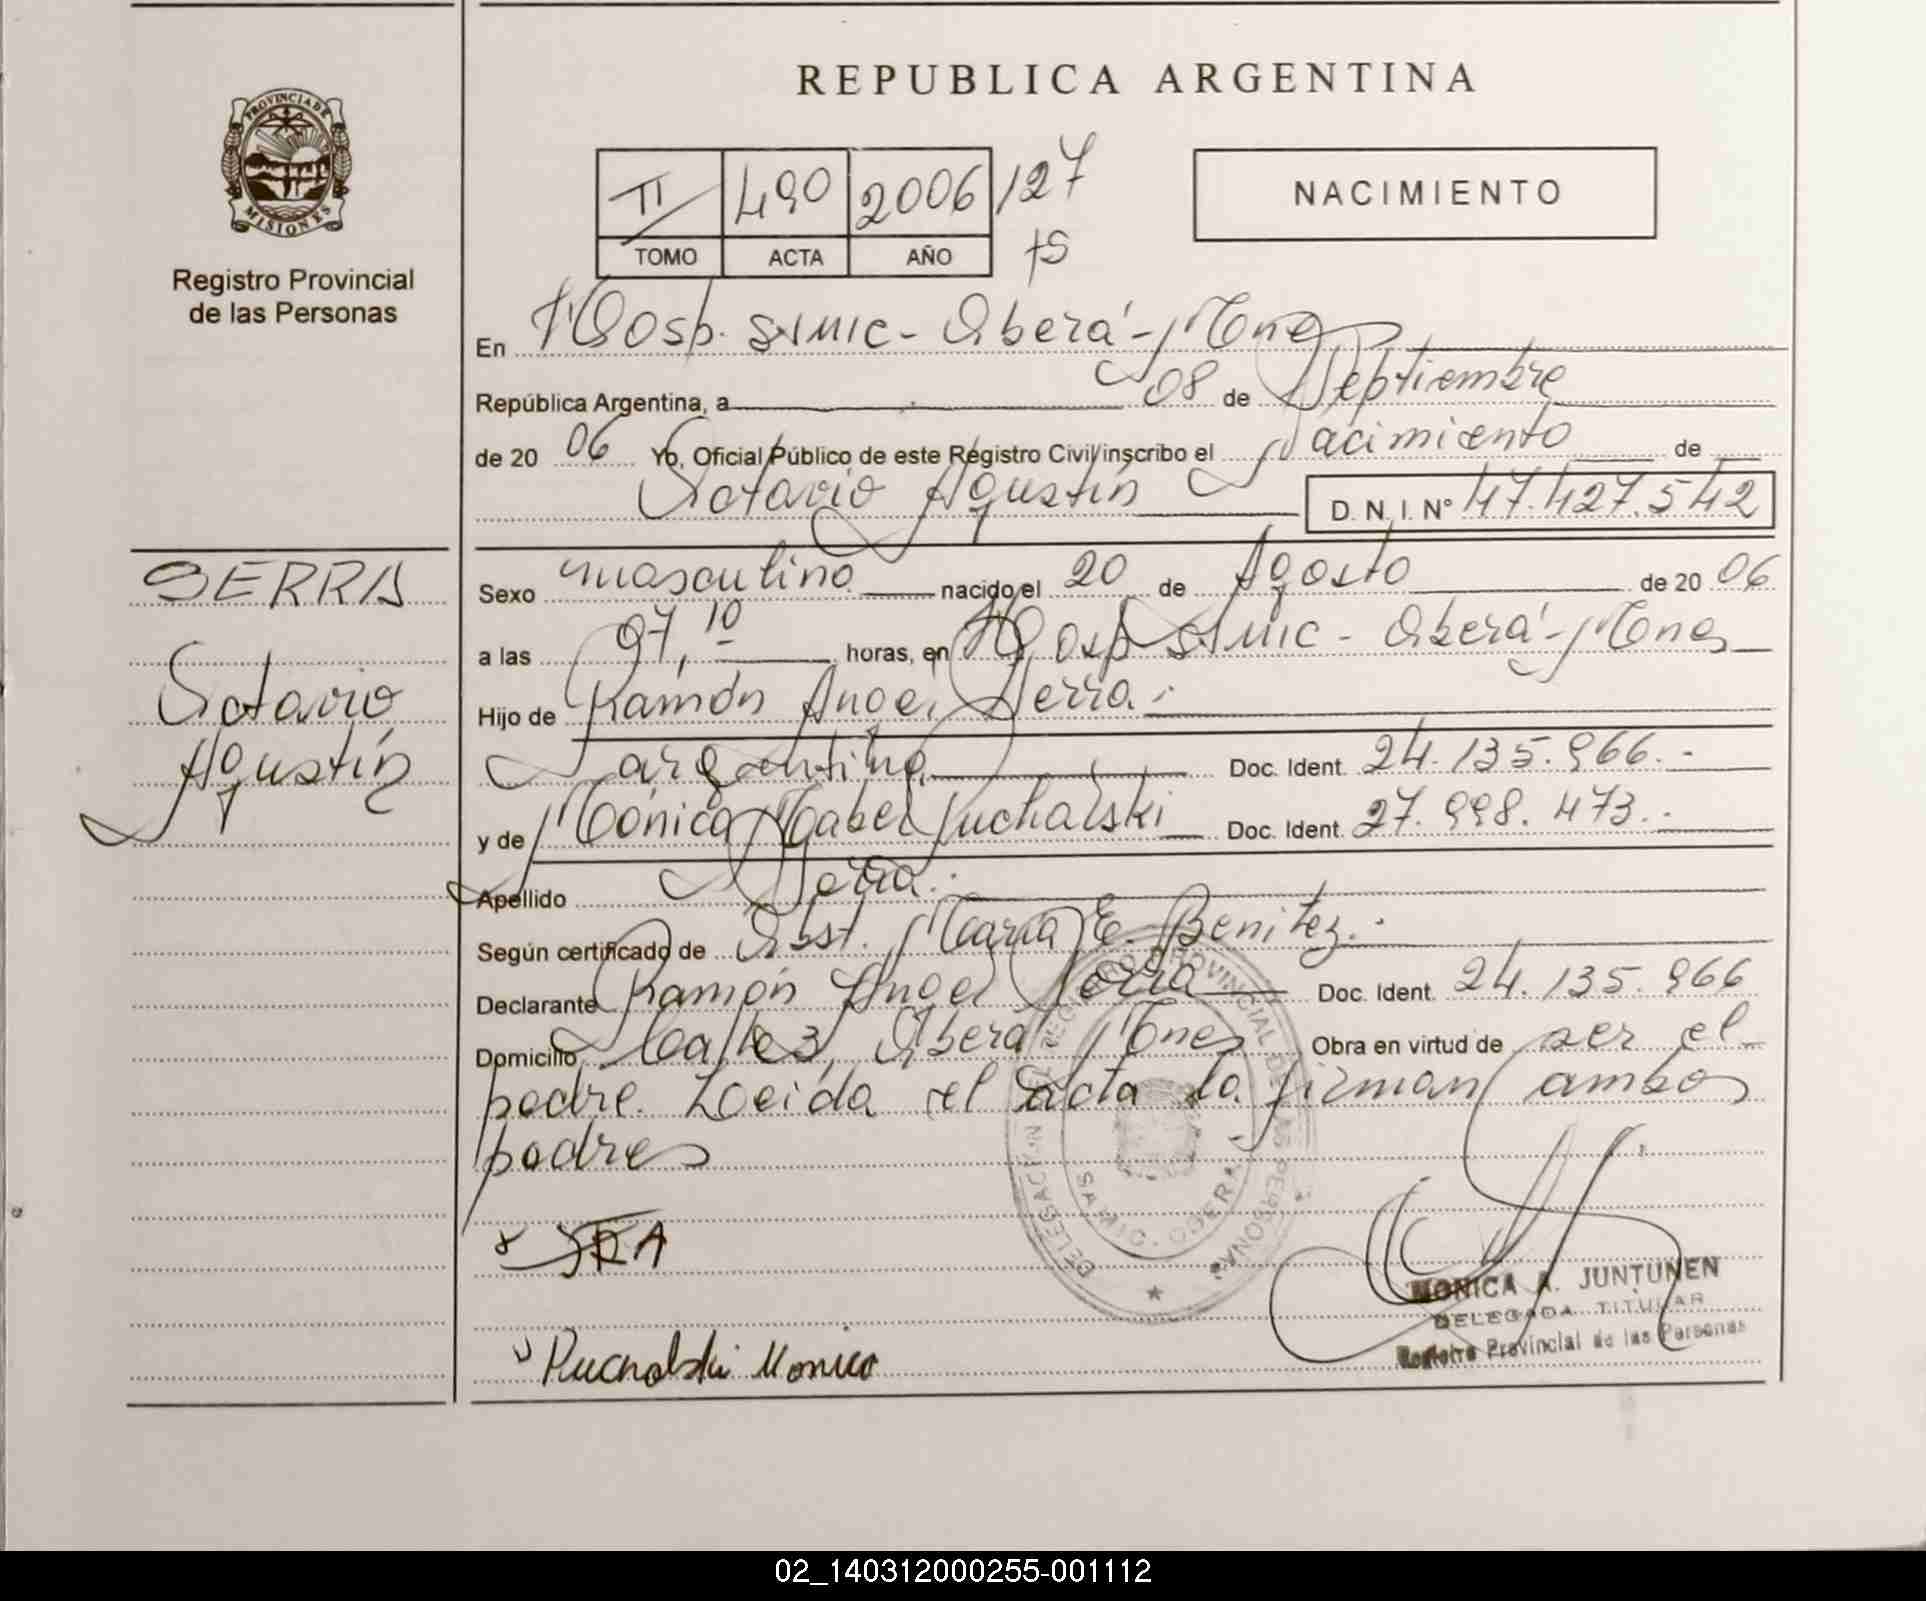 REPUBLICA ARGENTINA
PROVINCIA DE
MISIONES
Registro Provincial
de las Personas
II 490 2006 /27
TOMO ACTA AÑO
NACIMIENTO
En Hosp. SAMIC - Oberá - Mnes
República Argentina, a 08 de Septiembre
de 20 06 Yo, Oficial Público de este Registro Civil inscribo el Nacimiento de
Octavio Agustín D.N.I. Nº 47.427.542
SERRA
Octavio
Agustín
Sexo masculino nacido el 20 de Agosto de 20 06
a las 07,10 horas, en Hosp SAMIC - Oberá - Mnes
Hijo de Ramón Angel Serra.
argentina Doc. Ident. 24.135.966.-
y de Mónica Mabel Puchalski Doc. Ident. 27.998.473.-
Apellido Serra.
Según certificado de Obst. María E. Benitez.
Declarante Ramón Angel Serra Doc. Ident. 24.135.966
Domicilio Oberá Mnes Obra en virtud de ser el
padre. Leída el acta la firman ambos
padres
DELEGACION REGISTRO PROVINCIAL DE LAS PERSONAS
SAMIC - OBERA
Puchalski Monica
MONICA A. JUNTUNEN
DELEGADA TITULAR
Registro Provincial de las Personas
02_140312000255-001112